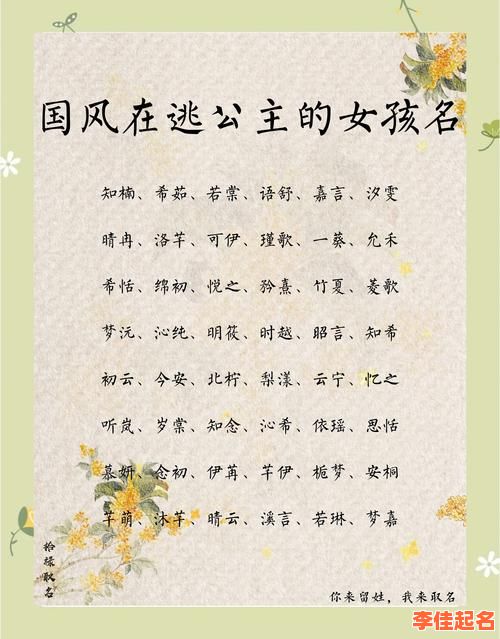 国风在逃公主的女孩名
知楠、希茹、若棠、语舒、嘉言、汐雯
晴冉、洛芊、可伊、瑾歌、一葵、允禾
希恬、绵初、悦之、矜熹、竹夏、菱歌
梦沅、沁纯、明筱、时越、昭言、知希
初云、今安、北柠、梨漾、云宁、忆之
听岚、岁棠、知念、沁希、依瑶、思恬
慕妍、念初、伊苒、芊伊、栀梦、安桐
芊萌、沐芊、晴云、溪言、若琳、梦嘉
拾禄取名
你来留姓，我来取名
李佳起名